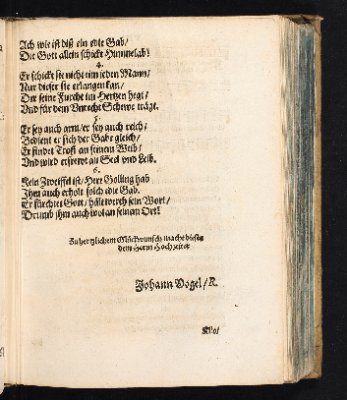 Ach wie ist diß ein edle Gab/
Die Gott allein schickt Himmelab!
4.
Er schickt sie nicht eim jeden Mann/
Nur dieser sie erlangen kan/
Der seine Furcht im Hertzen hegt/
Und für dem Vnrecht Schewe trägt.
5.
Er sey auch arm/er sey auch reich/
Bedient er sich der Gabe gleich/
Er findet Trost an seinem Weib/
Und wird erfrewt an Seel vnd Leib.
6.
Kein Zweiffel ist/Herr Golling hab
Ihm auch erholt solch edle Gab.
Er fürchtet Gott/hält werth sein Wort/
Drumb ihm auch wol an seinem Ort!
Zu hertzlichem Glückwunsch machte dieses
dem Herrn Hochzeiter
Johann Vogel/R.